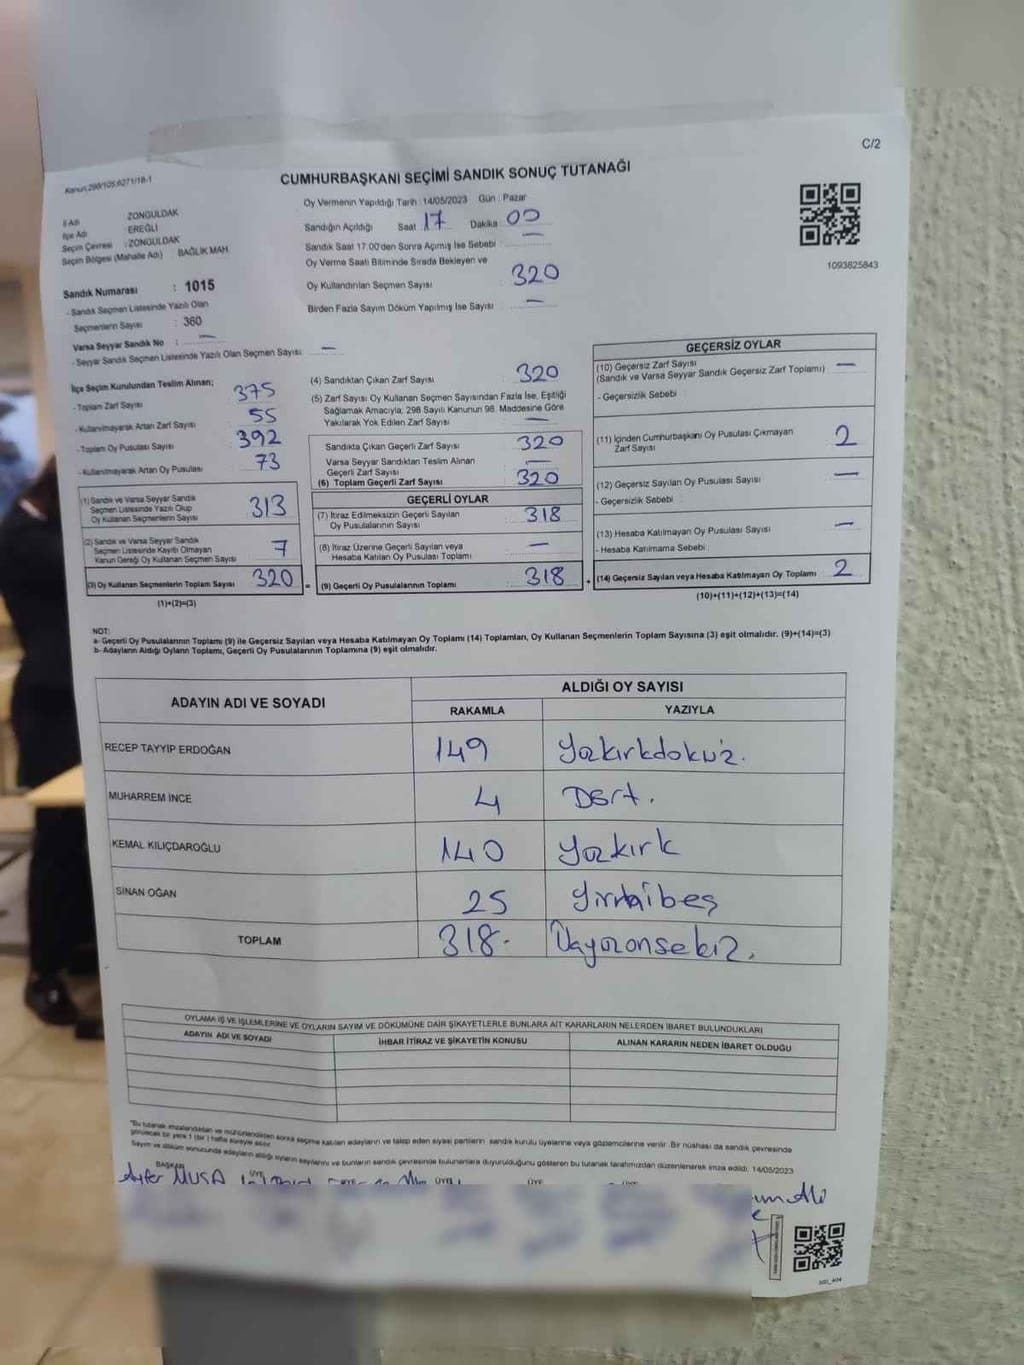 C/2
Kanun:298/105,6271/18-1
CUMHURBAŞKANI SEÇİMİ SANDIK SONUÇ TUTANAĞI
İl Adı ZONGULDAK
İlçe Adı EREĞLİ
Seçim Çevresi :ZONGULDAK
Seçim Bölgesi (Mahalle Adı) BAĞLIK MAH.
Sandık Numarası : 1015
- Sandık Seçmen Listesinde Yazılı Olan
Seçmenlerin Sayısı : 360
Varsa Seyyar Sandık No : —
- Seyyar Sandık Seçmen Listesinde Yazılı Olan Seçmen Sayısı: —
Oy Vermenin Yapıldığı Tarih : 14/05/2023 Gün : Pazar
Sandığın Açıldığı Saat 17 Dakika 00
Sandık Saat 17:00'den Sonra Açılmış İse Sebebi : —
Oy Verme Saati Bitiminde Sırada Bekleyen ve
Oy Kullandırılan Seçmen Sayısı 320
Birden Fazla Sayım Döküm Yapılmış İse Sayısı —
1093825843
İlçe Seçim Kurulundan Teslim Alınan;
- Toplam Zarf Sayısı 375
- Kullanılmayarak Artan Zarf Sayısı 55
- Toplam Oy Pusulası Sayısı 392
- Kullanılmayarak Artan Oy Pusulası 73
(1) Sandık ve Varsa Seyyar Sandık
Seçmen Listesinde Yazılı Olup
Oy Kullanan Seçmenlerin Sayısı 313
(2) Sandık ve Varsa Seyyar Sandık
Seçmen Listesinde Kayıtlı Olmayan
Kanun Gereği Oy Kullanan Seçmen Sayısı 7
(3) Oy Kullanan Seçmenlerin Toplam Sayısı 320 =
(1)+(2)=(3)
(4) Sandıktan Çıkan Zarf Sayısı : 320
(5) Zarf Sayısı Oy Kullanan Seçmen Sayısından Fazla İse, Eşitliği
Sağlamak Amacıyla; 298 Sayılı Kanunun 98. Maddesine Göre
Yakılarak Yok Edilen Zarf Sayısı —
Sandıkta Çıkan Geçerli Zarf Sayısı 320
Varsa Seyyar Sandıktan Teslim Alınan
Geçerli Zarf Sayısı —
(6) Toplam Geçerli Zarf Sayısı : 320
GEÇERLİ OYLAR
(7) İtiraz Edilmeksizin Geçerli Sayılan
Oy Pusulalarının Sayısı 318
(8) İtiraz Üzerine Geçerli Sayılan veya
Hesaba Katılan Oy Pusulası Toplamı —
(9) Geçerli Oy Pusulalarının Toplamı 318 +
GEÇERSİZ OYLAR
(10) Geçersiz Zarf Sayısı
(Sandık ve Varsa Seyyar Sandık Geçersiz Zarf Toplamı) —
- Geçersizlik Sebebi :
(11) İçinden Cumhurbaşkanı Oy Pusulası Çıkmayan
Zarf Sayısı 2
(12) Geçersiz Sayılan Oy Pusulası Sayısı —
- Geçersizlik Sebebi :
(13) Hesaba Katılmayan Oy Pusulası Sayısı —
- Hesaba Katılmama Sebebi :
(14) Geçersiz Sayılan veya Hesaba Katılmayan Oy Toplamı 2
(10)+(11)+(12)+(13)=(14)
NOT:
a- Geçerli Oy Pusulalarının Toplamı (9) ile Geçersiz Sayılan veya Hesaba Katılmayan Oy Toplamı (14) Toplamları, Oy Kullanan Seçmenlerin Toplam Sayısına (3) eşit olmalıdır. (9)+(14)=(3)
b- Adayların Aldığı Oyların Toplamı, Geçerli Oy Pusulalarının Toplamına (9) eşit olmalıdır.
ADAYIN ADI VE SOYADI ALDIĞI OY SAYISI
RAKAMLA YAZIYLA
RECEP TAYYİP ERDOĞAN 149 Yüzkırkdokuz.
MUHARREM İNCE 4 Dört.
KEMAL KILIÇDAROĞLU 140 Yüzkırk
SİNAN OĞAN 25 Yirmibeş
TOPLAM 318- Üçyüzonsekiz.
OYLAMA İŞ VE İŞLEMLERİNE VE OYLARIN SAYIM VE DÖKÜMÜNE DAİR ŞİKAYETLERLE BUNLARA AİT KARARLARIN NELERDEN İBARET BULUNDUKLARI
ADAYIN ADI VE SOYADI İHBAR İTİRAZ VE ŞİKAYETİN KONUSU ALINAN KARARIN NEDEN İBARET OLDUĞU
*Bu tutanak imzalandıktan ve mühürlendikten sonra seçime katılan adayların ve talep eden siyasi partilerin sandık kurulu üyelerine veya gözlemcilerine verilir. Bir nüshası da sandık çevresinde
görülecek bir yere 1 (bir) hafta süreyle asılır.
Sayım ve döküm sonucunda adayların aldığı oyların sayılarını ve bunların sandık çevresinde bulunanlara duyurulduğunu gösteren bu tutanak tarafımızdan düzenlenerek imza edildi. 14/05/2023
BAŞKAN ÜYE ÜYE ÜYE ÜYE
Ayfer MUSA